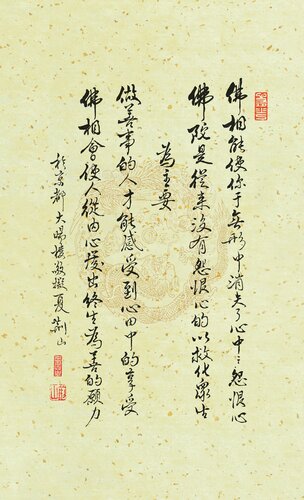 佛相能使你于無形中消失了心中之怨恨心
佛院是從来没有怨恨心的以救化眾生
為主要
做善事的人才能感受到心田中的享受
佛相會使人從內心發出終生為善的願力
於京都大陽樓敬撰夏荊山